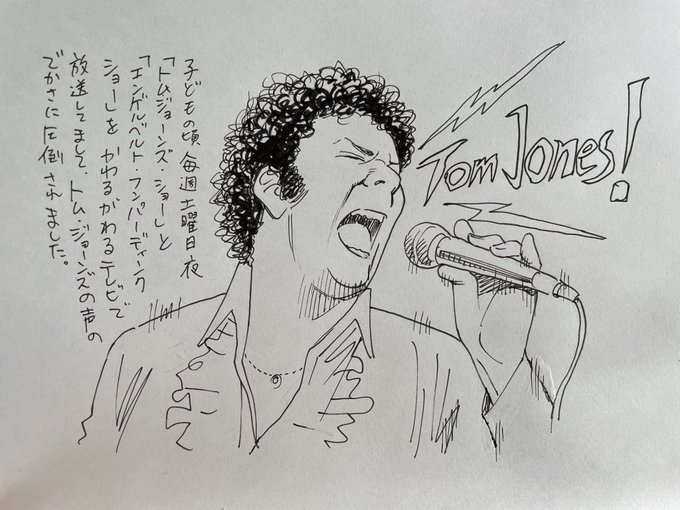 子どもの頃 毎週土曜日夜
「トムジョーンズ・ショー」と
「エンゲルベルト・フンパーディンク
ショー」を かわるがわるテレビで
放送してまして、トム・ジョーンズの声の
でかさに圧倒されました。
Tom Jones!